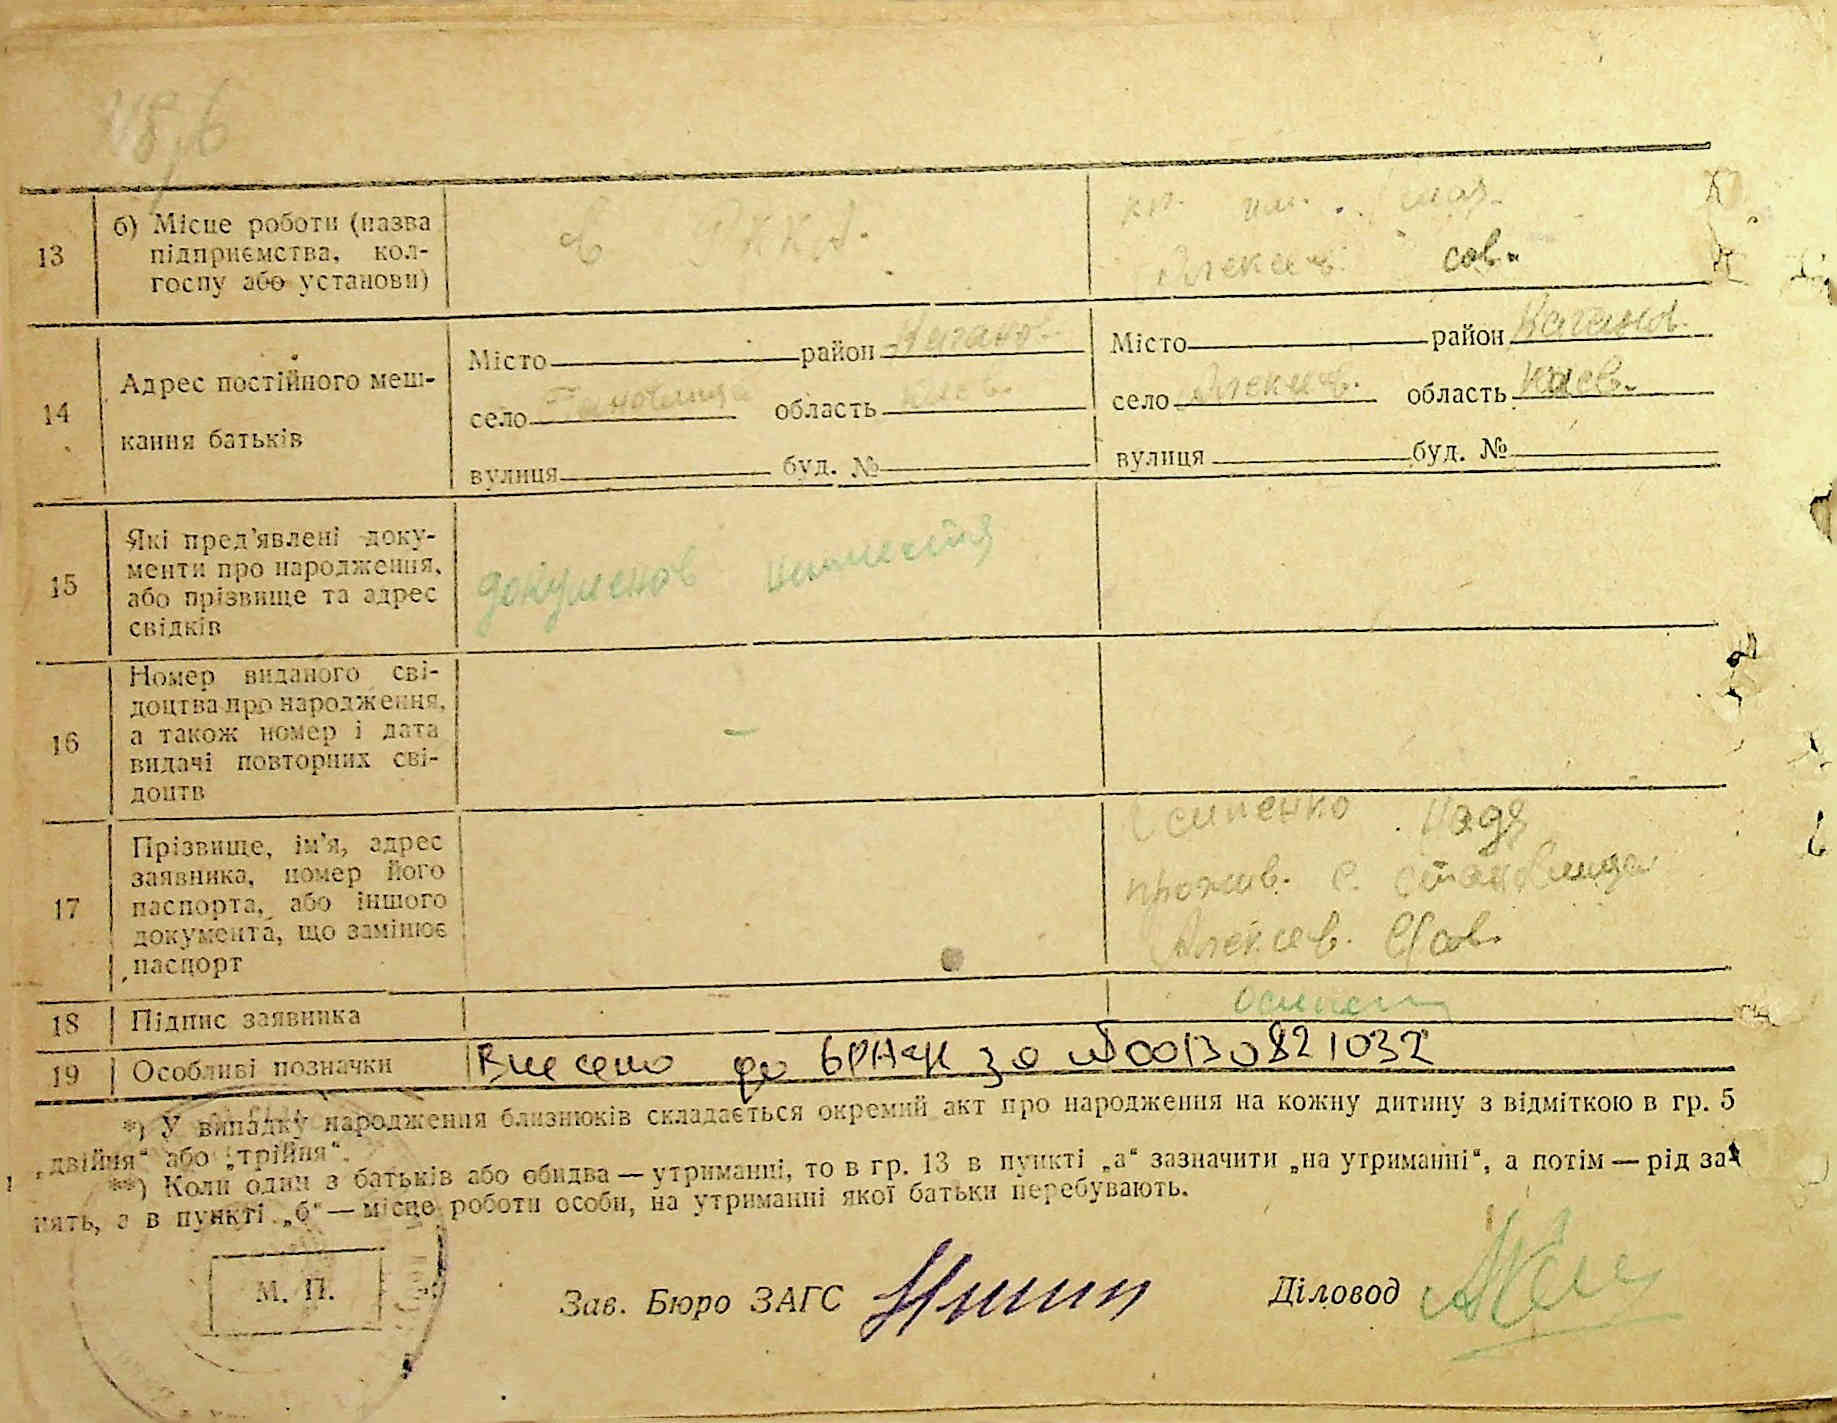 13
б) Місце роботи (назва
підприємства, кол-
госпу або установи)
в РККА.
Алексеев. сов.
14
Адрес постійного меш-
кання батьків
Місто район
село Становища область Киев.
вулиця буд. №
Місто район
село Алексеев. область Киев.
вулиця буд. №
15
Які пред'явлені доку-
менти про народження,
або прізвище та адрес
свідків
документов
16
Номер виданого сві-
доцтва про народження,
а також номер і дата
видачі повторних сві-
доцтв
–
17
Прізвище, ім'я, адрес
заявника, номер його
паспорта, або іншого
документа, що замінює
паспорт
Осипенко Надя
прожив. с. Становища
Алексеев. С/сов.
18 Підпис заявника
19 Особливі позначки Внесено до ДРАЦС за №00130821032
*) У випадку народження близнюків складається окремий акт про народження на кожну дитину з відміткою в гр. 5
„двійня“ або „трійня“.
**) Коли один з батьків або обидва — утриманні, то в гр. 13 в пункті „а“ зазначити „на утриманні“, а потім — рід за
нять, а в пункті „б“ — місце роботи особи, на утриманні якої батьки перебувають.
М. П.
Зав. Бюро ЗАГС
Діловод